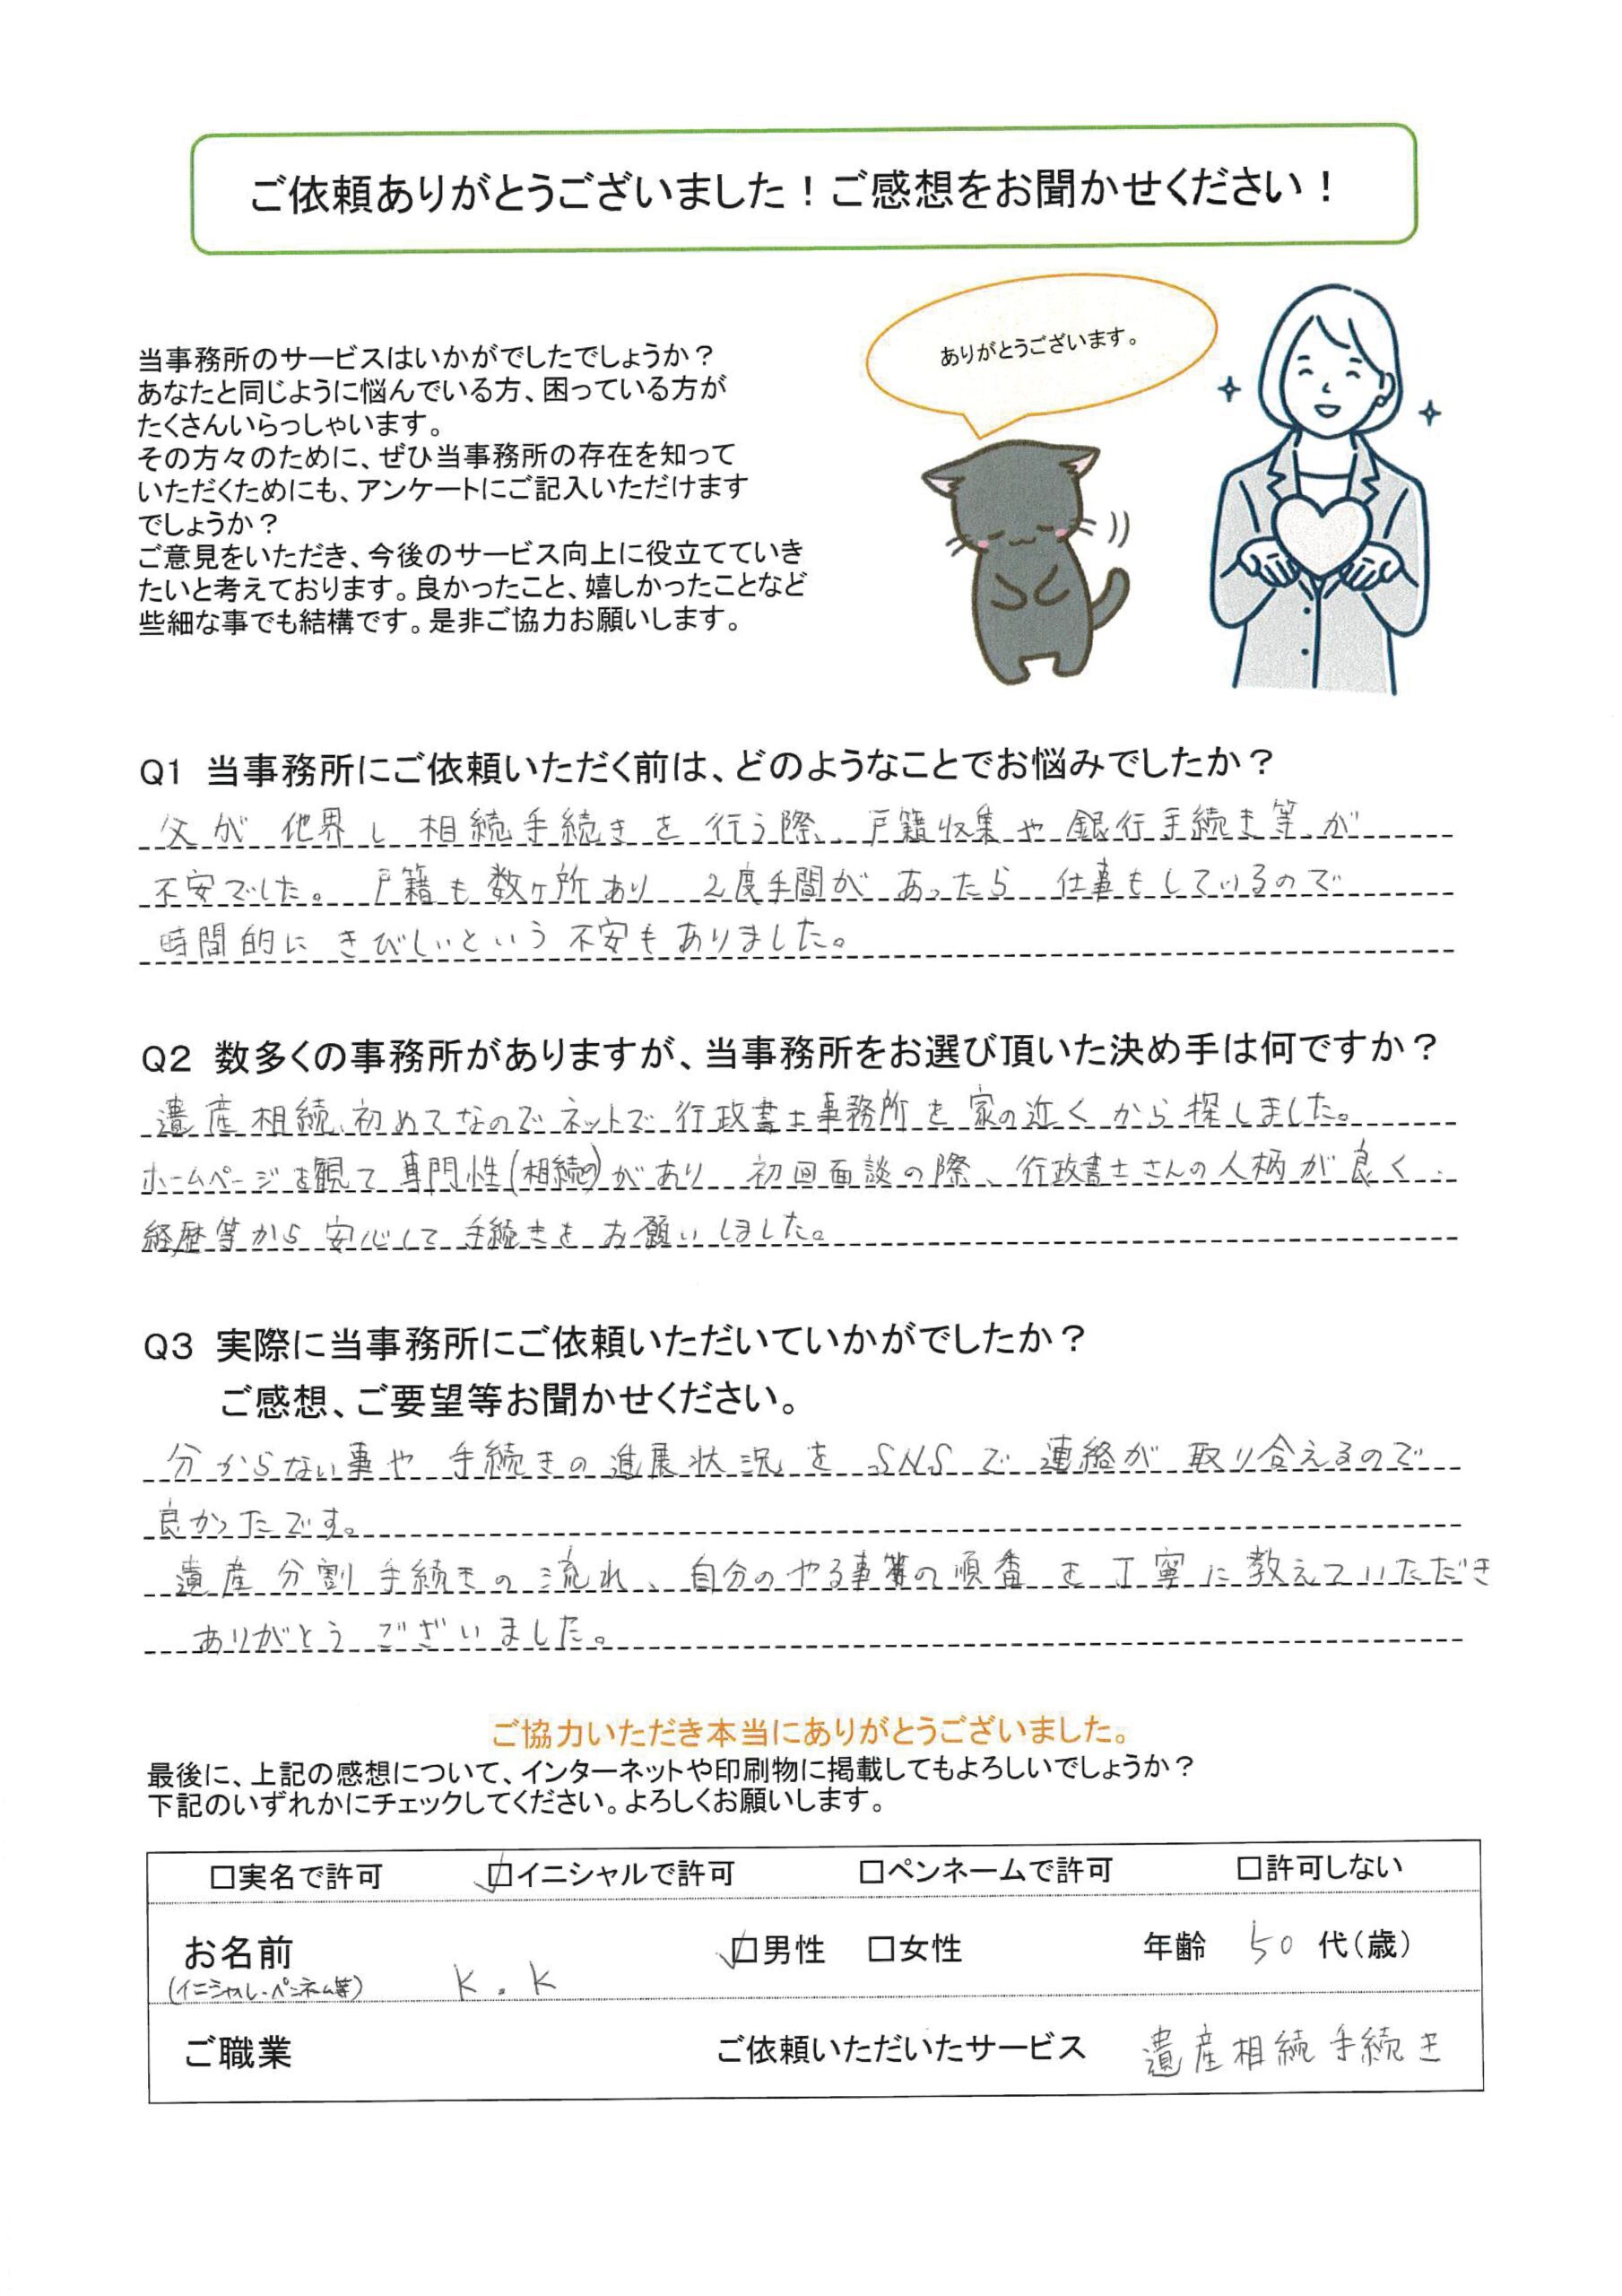 ご依頼ありがとうございました！ご感想をお聞かせください！
ありがとうございます。
当事務所のサービスはいかがでしたでしょうか？
あなたと同じように悩んでいる方、困っている方が
たくさんいらっしゃいます。
その方々のために、ぜひ当事務所の存在を知って
いただくためにも、アンケートにご記入いただけます
でしょうか？
ご意見をいただき、今後のサービス向上に役立てていき
たいと考えております。良かったこと、嬉しかったことなど
些細な事でも結構です。是非ご協力お願いします。
Q1 当事務所にご依頼いただく前は、どのようなことでお悩みでしたか？
父が他界し相続手続きを行う際、戸籍収集や銀行手続き等が
不安でした。戸籍も数ヶ所あり 2度手間があったら 仕事もしているので
時間的にきびしいという不安もありました。
Q2 数多くの事務所がありますが、当事務所をお選び頂いた決め手は何ですか？
遺産相続、初めてなのでネットで行政書士事務所を家の近くから探しました。
ホームページを観て専門性(相続の)があり 初回面談の際、行政書士さんの人柄が良く、
経歴等から安心して手続きをお願いしました。
Q3 実際に当事務所にご依頼いただいていかがでしたか？
ご感想、ご要望等お聞かせください。
分からない事や手続きの進展状況をSNSで連絡が取り合えるので
良かったです。
遺産分割手続きの流れ、自分のやる事等の順番を丁寧に教えていただき
ありがとうございました。
ご協力いただき本当にありがとうございました。
最後に、上記の感想について、インターネットや印刷物に掲載してもよろしいでしょうか？
下記のいずれかにチェックしてください。よろしくお願いします。
□実名で許可 ☑イニシャルで許可 □ペンネームで許可 □許可しない
お名前 ☑男性 □女性 年齢 50 代(歳)
(イニシャル・ペンネーム等) K.K
ご職業 ご依頼いただいたサービス 遺産相続手続き